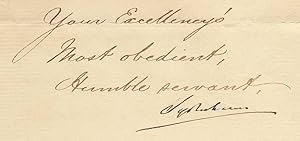 Your Excellency's
Most obedient,
Humble servant,